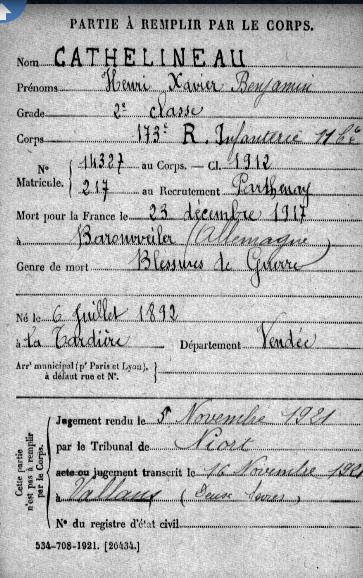 PARTIE À REMPLIR PAR LE CORPS.
Nom CATHELINEAU
Prénoms Henri Xavier Benjamin
Grade 2e classe
Corps 173e R. Infanterie 11e Cie
Nº 14327 au Corps. — Cl. 1912
Matricule. 217 au Recrutement Parthenay
Mort pour la France le 23 décembre 1917
à Baronweiler (Allemagne)
Genre de mort Blessures de Guerre
Né le 6 Juillet 1892
à La Tardière Département Vendée
Arrt municipal (pr Paris et Lyon),
à défaut rue et Nº.
Cette partie
n'est pas à remplir
par le Corps.
Jugement rendu le 5 Novembre 1921
par le Tribunal de Niort
acte ou jugement transcrit le 16 Novembre 1921
à Vallans (Deux Sèvres)
Nº du registre d'état civil
534-708-1921. [26434.]